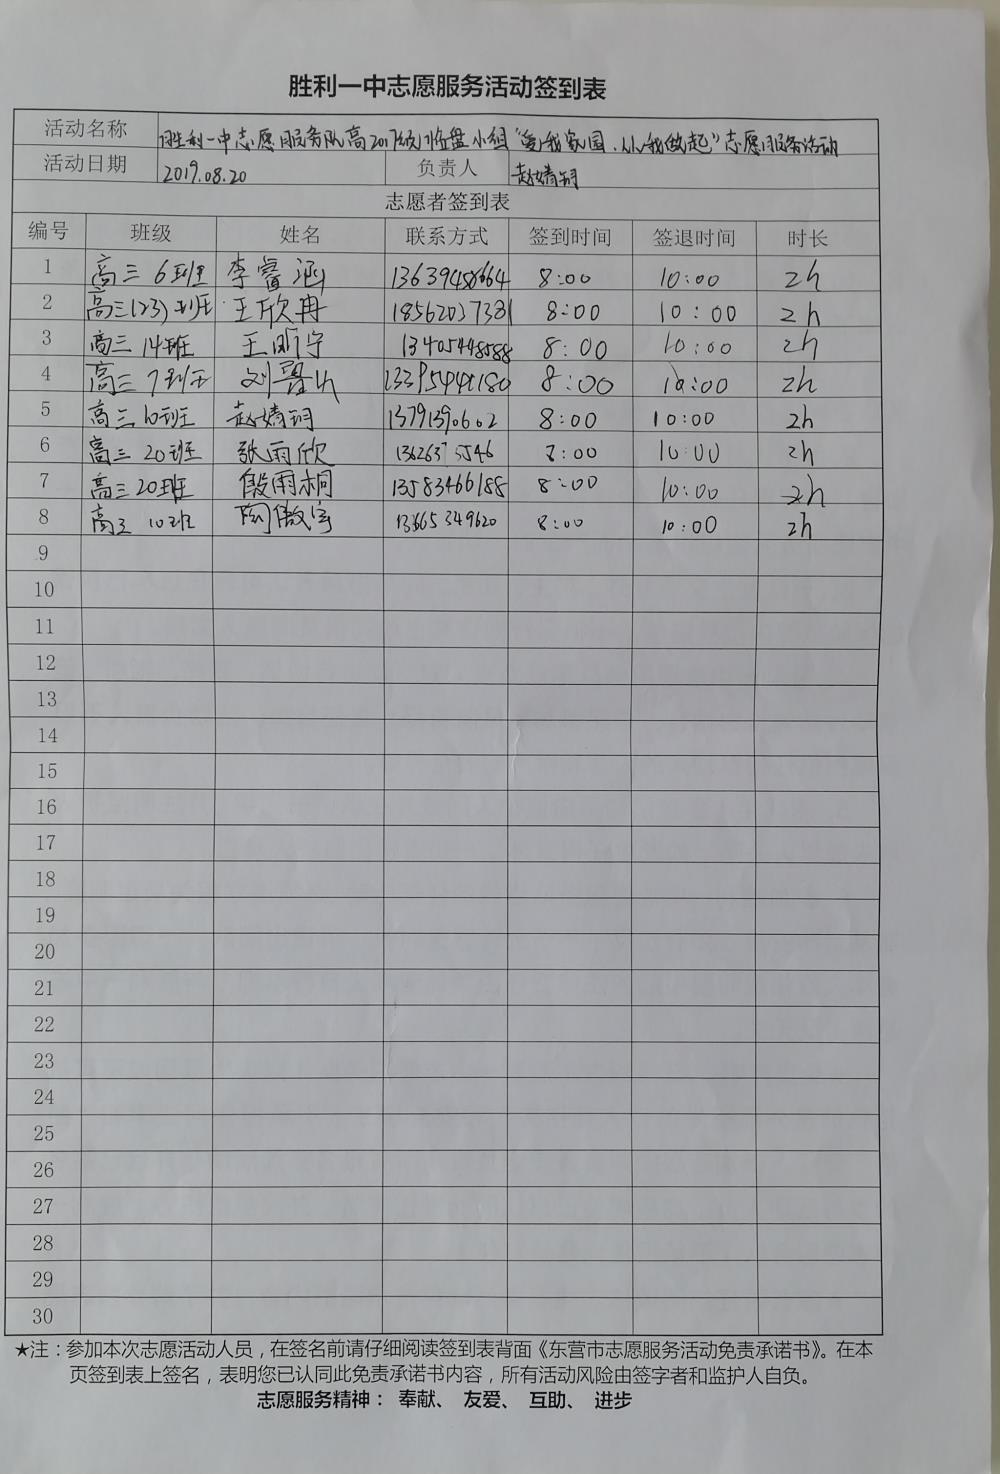 胜利一中志愿服务活动签到表
活动名称 胜利一中志愿服务队高2017级临盘小组“爱我家园,从我做起”志愿服务活动
活动日期 2019.08.20 负责人 赵婧羽
志愿者签到表
编号 班级 姓名 联系方式 签到时间 签退时间 时长
1 高三 6班 李睿涵 8:00 10:00 2h
2 高三(23)班 王欣冉 8:00 10:00 2h
3 高三 14班 王昕宁 13405448588 8:00 10:00 2h
4 高三 7班 刘 8:00 10:00 2h
5 高三10班 赵婧羽 13791390602 8:00 10:00 2h
6 高三 20班 张雨欣 8:00 10:00 2h
7 高三20班 殷雨桐 13583466188 8:00 10:00 2h
8 高三 10班 陶傲宇 13665349620 8:00 10:00 2h
9
10
11
12
13
14
15
16
17
18
19
20
21
22
23
24
25
26
27
28
29
30
★注:参加本次志愿活动人员,在签名前请仔细阅读签到表背面《东营市志愿服务活动免责承诺书》。在本
页签到表上签名,表明您已认同此免责承诺书内容,所有活动风险由签字者和监护人自负。
志愿服务精神: 奉献、 友爱、 互助、 进步